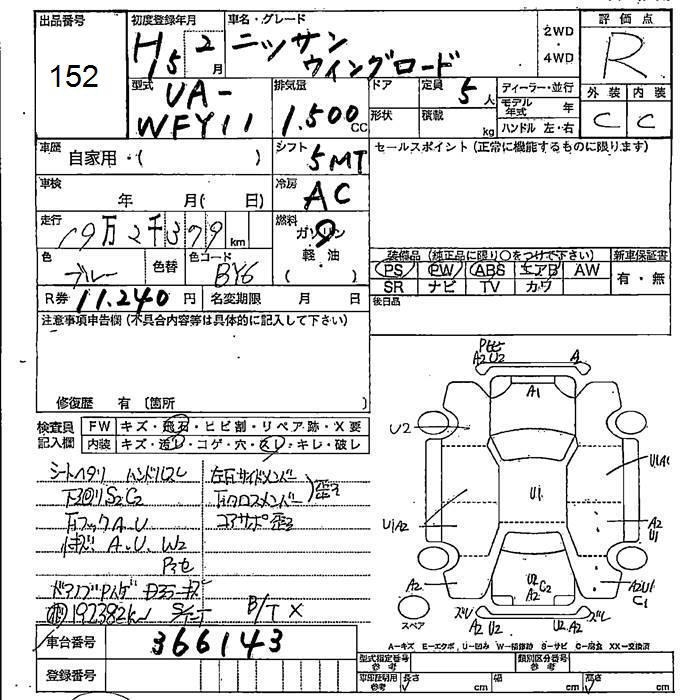 出品番号
152
初度登録年月
H15 2月
車名・グレード
ニッサン
ウイングロード
2WD
・
4WD
評価点
R
外装 内装
C C
型式
UA-
WFY11
排気量
1.500 CC
ドア
定員
5人
形状
積載
kg
ディーラー・並行
モデル年式 年
ハンドル 左・右
車歴
自家用・( )
シフト
5MT
セールスポイント (正常に機能するものに限ります)
車検
年 月( 日)
冷房
AC
走行
19万2千379km
燃料
ガソリン
軽・油
( )
色
ブルー
色替
色コード
BY6
装備品 (純正品に限り○をつけて下さい)
PS PW ABS エアB AW
SR ナビ TV カワ
新車保証書
有・無
R券 11.240円
名変期限 月 日
後日品
注意事項申告欄 (不具合内容等は具体的に記入して下さい)
修復歴 有 〔箇所 〕
検査員
記入欄
FW キズ・飛石・ヒビ割・リペア跡・X要
内装 キズ・汚レ・コゲ・穴・スレ・キレ・破レ
シートヘタリ ハンドルスレ
下回りS2C2
左右サイドメンバー
コアサポ歪
A.U
A.U.W2
192382km
B/T X
A2 U2
A
A1
U2
U1
U1A1
U1A2
A2
U1
U2
A2
C2
A2
A2U1
C1
スペア
ズレ
A2 U2
U2 A2
ズレ
A-キズ E-エクボ, U-凹み W-補修跡 S-サビ C-腐食 XX-交換済
車台番号
366143
登録番号
型式指定番号
参考
類別区分番号
参考
車庫証明用
参考
長さ cm
幅 cm
高さ cm